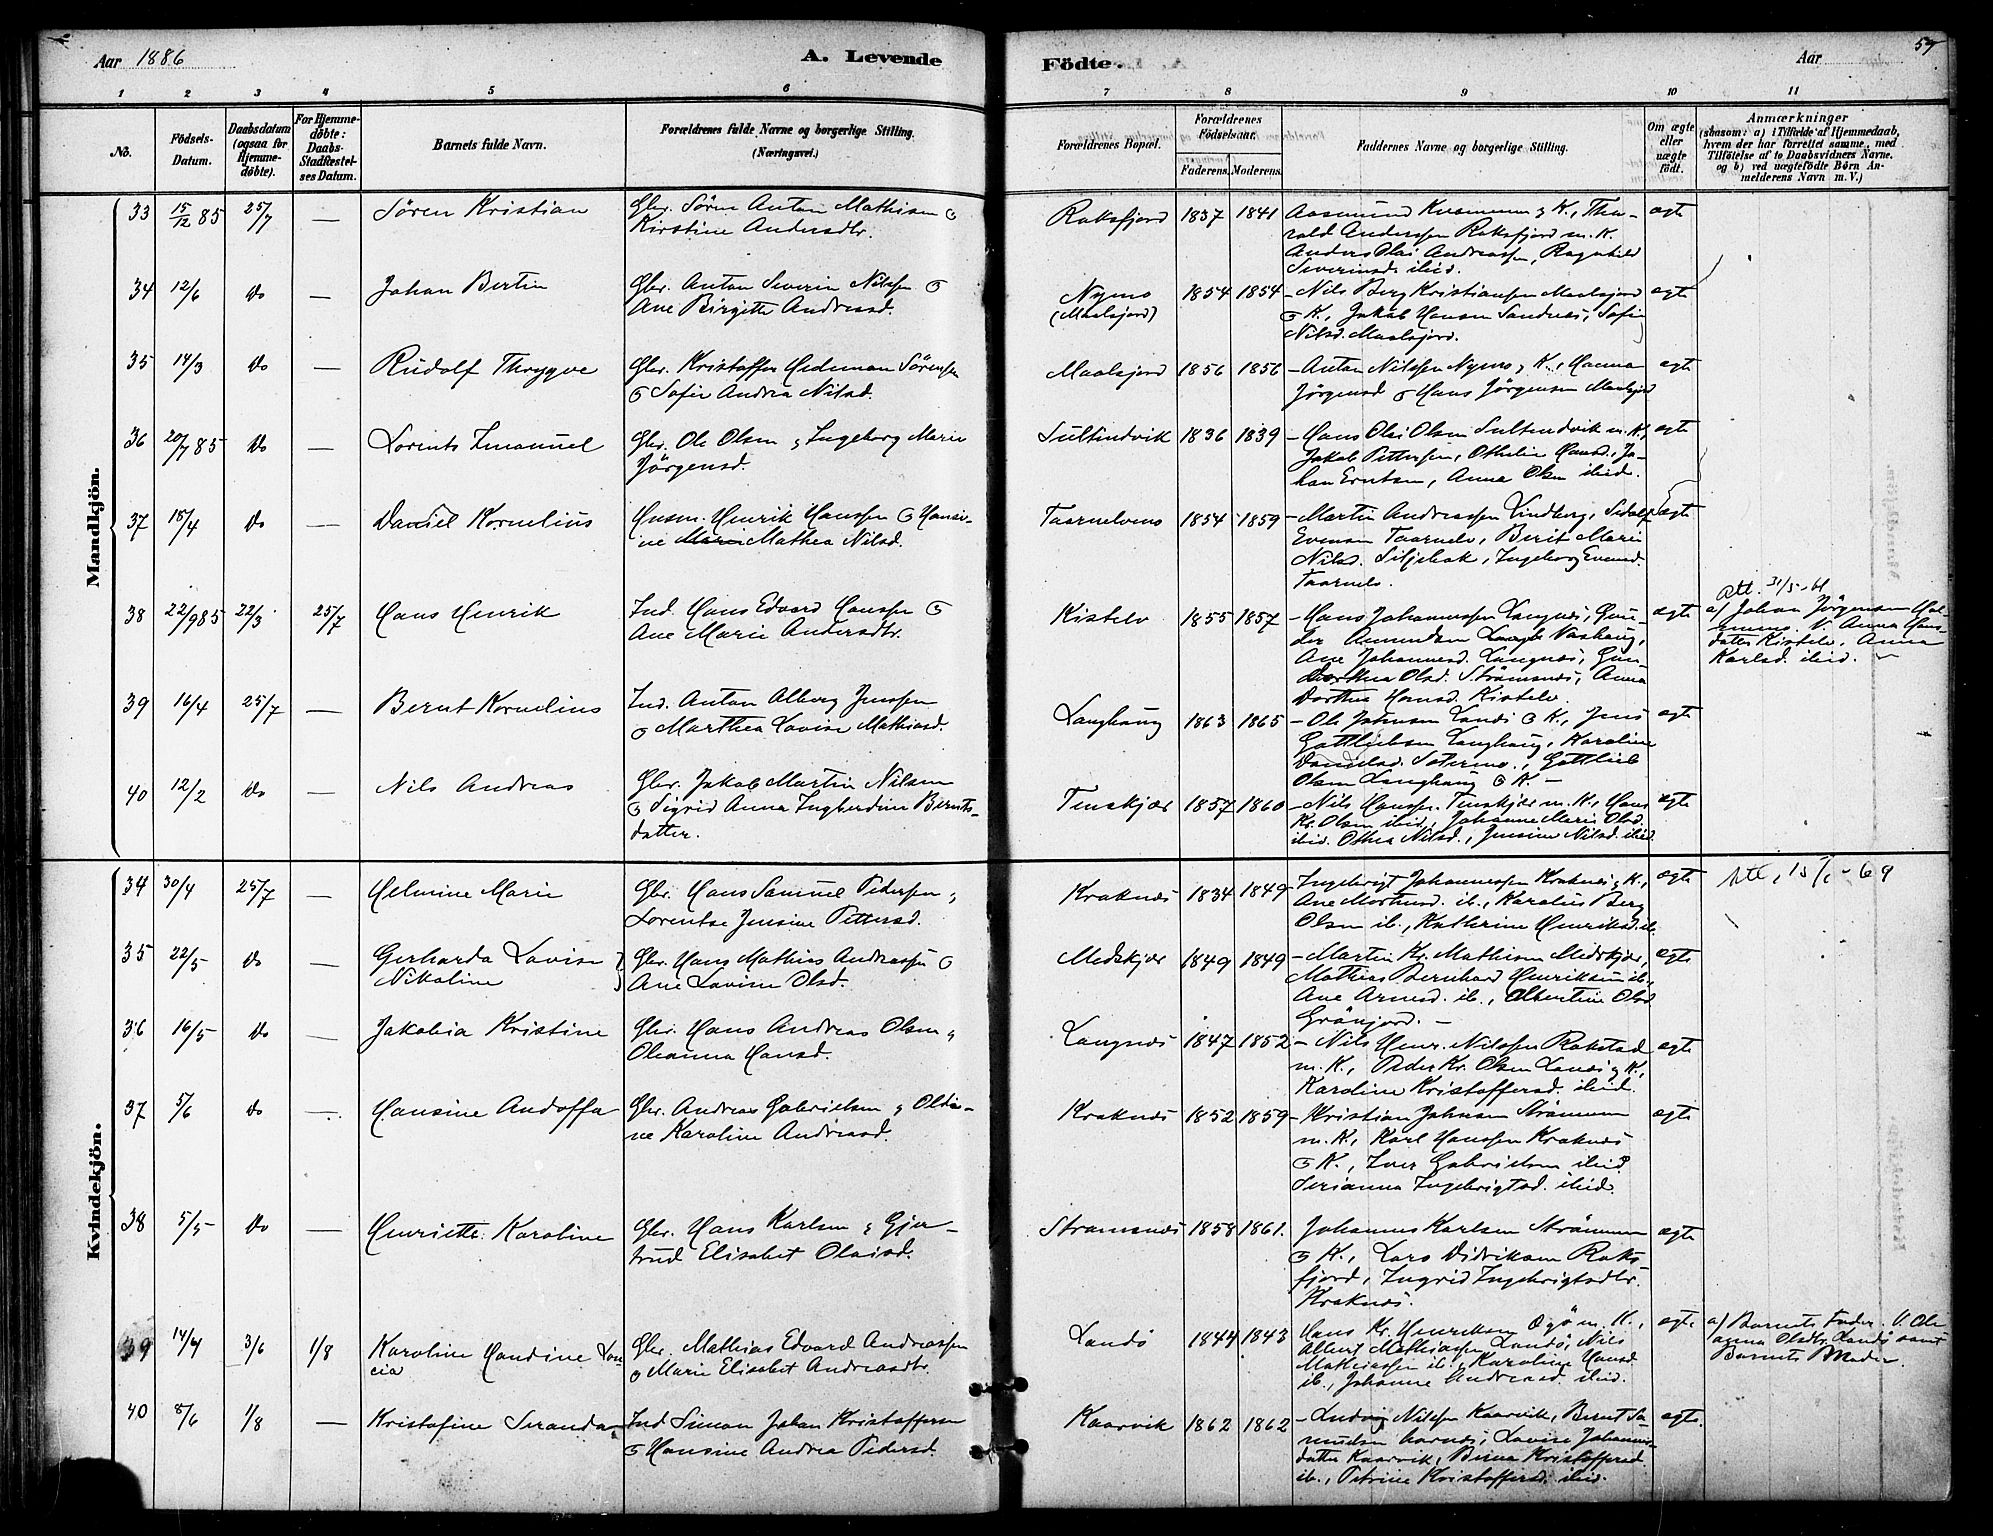 Aar 1886
A. Levende
Födte.
Aar
57
1 2 3 4 5 6 7 8 9 10 11
No.
Födsels-
Datum.
Daabsdatum
(ogsaa for
Hjemme-
döbte).
For Hjemme-
döbte:
Daabs-
Stadfæstel-
ses Datum.
Barnets fulde Navn.
Forældrenes fulde Navne og borgerlige Stilling.
(Næringsvei.)
Forældrenes Bopæl.
Forældrenes
Födselsaar.
Faderens. Moderens.
Faddernes Navne og borgerlige Stilling.
Om ægte
eller
uægte
födt.
Anmærkninger
(saasom: a) i Tilfælde af Hjemmedaab,
hvem der har forrettet samme, med
Tilföielse af to Daabsvidners Navne,
og b) ved uægtefödte Börn An-
melderens Navn m. V.)
Mandkjön.
33 15/12 85 25/7 — Sören Kristian
Gbr. Sören Anton Mathisen &
Kirstine Andersdtr.
Raksfjord 1837 1841
ægte
rald Anderssen Raksfjord m. K.
Anders Olai Andreassen, Ragnhild
Severinsd. ibid.
34 12/6 Do — Johan Bertin
Gbr. Anton Severin Nilssen &
Ane Birgitte Andreasd.
Nymo
(Maalsjord)
1854 1854
– Nils Berg Kristiansen Maalsjord
& K., Jakob Hansen Sandnes, Sofie
Nilsd. Maalsjord.
ægte
35 14/3 Do — Rudolf Thrygve
Gbr. Kristoffer Hedeman Sörensen
& Sofie Andrea Nilsd.
Maalsjord 1856 1856
– Anton Nilssen Nymo & K., Hanna
Jörgensd & Hans Jörgensen Maalsjord
ægte
36 20/7 85 Do — Lorents Emanuel
Gbr. Ole Olsen & Ingeborg Marie
Jörgensd.
Sultindvik 1836 1839
– Hans Olai Olsen Sultindvik m. K.,
Jakob Pettersen, Othelie Hansd., Jo-
han Erntsen, Anna Olsen ibid.
ægte
37 18/4 Do — Daniel Kornelius
Husm. Henrik Hanssen & Hansi-
ne Marie Mathea Nilsd.
Taarnelvens 1854 1859
– Martin Andreassen Lindberg,
Evensen Taarnelv, Berit Marie
Nilsd. Siljebak, Ingeborg Evensd.
Taarnelv.
ægte
38 22/9 85 22/3 25/7 Hans Henrik
Ind. Hans Edvard Hanssen &
Ane Marie Andersdtr.
Kistelv 1855 1857
– Hans Johannessen Langnes, Gun-
der Amundsen Vashaug,
Ane Johannesd. Langnes, Gun-
Dorthea Olsd. Strömsnes, Anna
Dorthea Hansd. Kistelv.
ægte
Att. 31/5-61
a) Johan Jörgensen
V. Anna Hans-
datter Kistelv, Anna
Karlsd. ibid.
39 16/4 25/7 — Bernt Kornelius
Ind. Anton Alberg Jenssen
& Marthea Lovise Mathiasd.
Langhaug 1863 1865
– Ole Johnsen Landö & K., Jens
Gottliebsen Langhaug, Karoline
Danielsd. Sætermo, Gottlieb
Olsen Langhaug & K. –
ægte
40 12/2 Do — Nils Andreas
Gbr. Jakob Martin Nilsen
& Sigrid Anna Ingberdine Bernts-
datter.
Tinskjær 1857 1860
– Nils Hanssen Tinskjær m. K., Hans
Kr. Olsen ibid., Johanne Marie Olsd.
ibid. Othea Nilsd., Jensine Nilsd. ibid.
ægte
Kvindekjön.
34 30/4 25/7 — Helmine Marie
Gbr. Hans Samuel Pedersen &
Lorentse Jensine Pettersd.
Kraknes 1834 1849
Ingebrigt Johannessen Kraknes & K.,
Ane Mortensd. ib., Karelius Berg
Olsen ib., Kathrine Henriksd. ib.
ægte
Att. 15/1-69
35 22/5 Do — Gerharda Lovise
Nikoline
Gbr. Hans Mathias Andreassen &
Ane Lovise Olsd.
Medskjær 1849 1849
– Martin Kr. Mathisen Medskjær,
Mathias Bernhard Henriksen ib.,
Ane Arnesd. ib., Albertine Olsd
Grönjord. –
ægte
36 16/5 Do — Jakobia Kristine
Gbr. Hans Andreas Olsen &
Oleanna Hansd.
Langnes 1847 1852
– Nils Henr. Nilssen Rakstad
m. K., Peder Kr. Olsen Landö & K.,
Karoline Kristoffersd. ibid.
ægte
37 5/6 Do — Hansine Andoffa
Gbr. Andreas Gabrielsen & Oldi-
ne Karoline Andreasd.
Kraknes 1852 1859
– Kristian Johnsen Strömmen
m. K., Karl Hanssen Kraknes
& K., Iver Gabrielsen ibid.
Serianna Ingebrigtsd. ibid.
ægte
38 5/5 Do — Henriette Karoline
Gbr. Hans Karlsen & Gjer-
trud Elisabet Olaisd.
Stramsnes 1858 1861.
Johannes Karlsen Strömmen
& K., Lars Didriksen Raks-
fjord, Ingrid Ingebrigtsdtr.
Kraknes.
ægte
39 14/4 3/6 1/8 Karoline Handine
cia
Gbr. Mathias Edvard Andreassen
& Marie Elisabet Andreasdtr.
Landö 1844 1843
Hans Kr. Henriksen m. K.,
Albert Mathiassen Landö, Nils
Mathiassen ib., Karoline Hansd
ib., Johanne Andreasd. ibid.
ægte.
a) Barnets Fader. V. Ole
Olsdtr. Landö samt
Barnets Moder
40 8/6 1/8 — Kristofine Seranda
Ind Simon Johan Kristoffersen
& Hansine Andrea Pedersd.
Kaarvik 1862 1862
– Ludvig Nilssen Kaarvik, Bernt Sa-
muelsen, Lovise Johannes-
datter Kaarvik, Berna Kristoffersd
ib., Petrine Kristoffersd. ibid.
ægte.